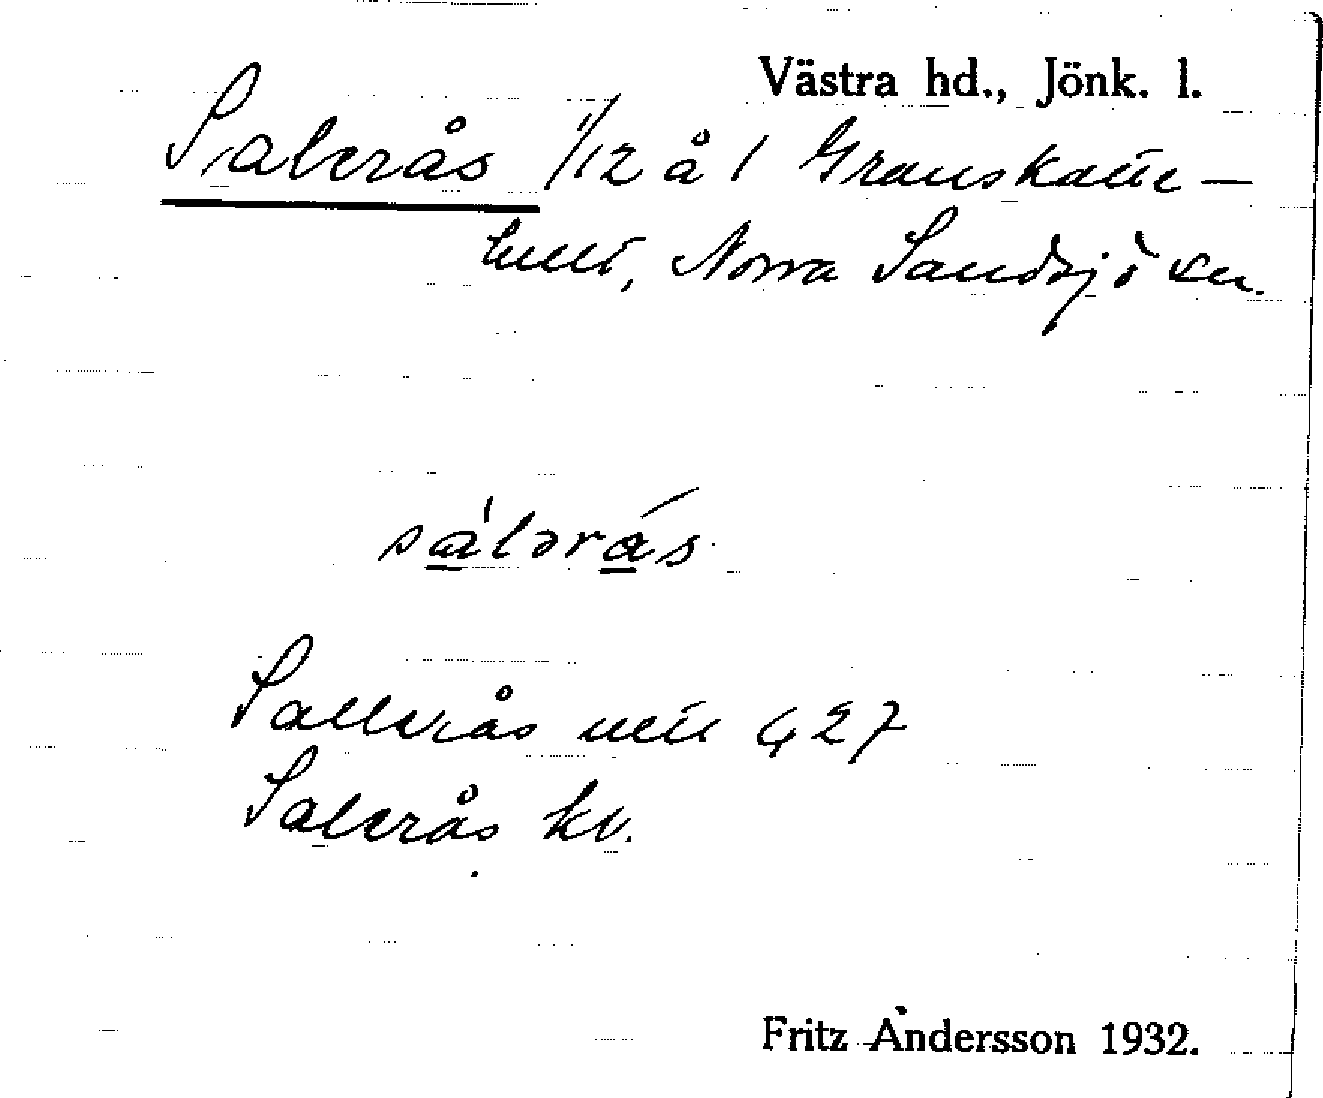 Västra hd., Jönk. l.
Salerås 1/12 å 1 Granskatte-
hult, Norra Sandsjö sn.
sàlərás
Sallerås utt 427
Salerås kv.
Fritz Andersson 1932.